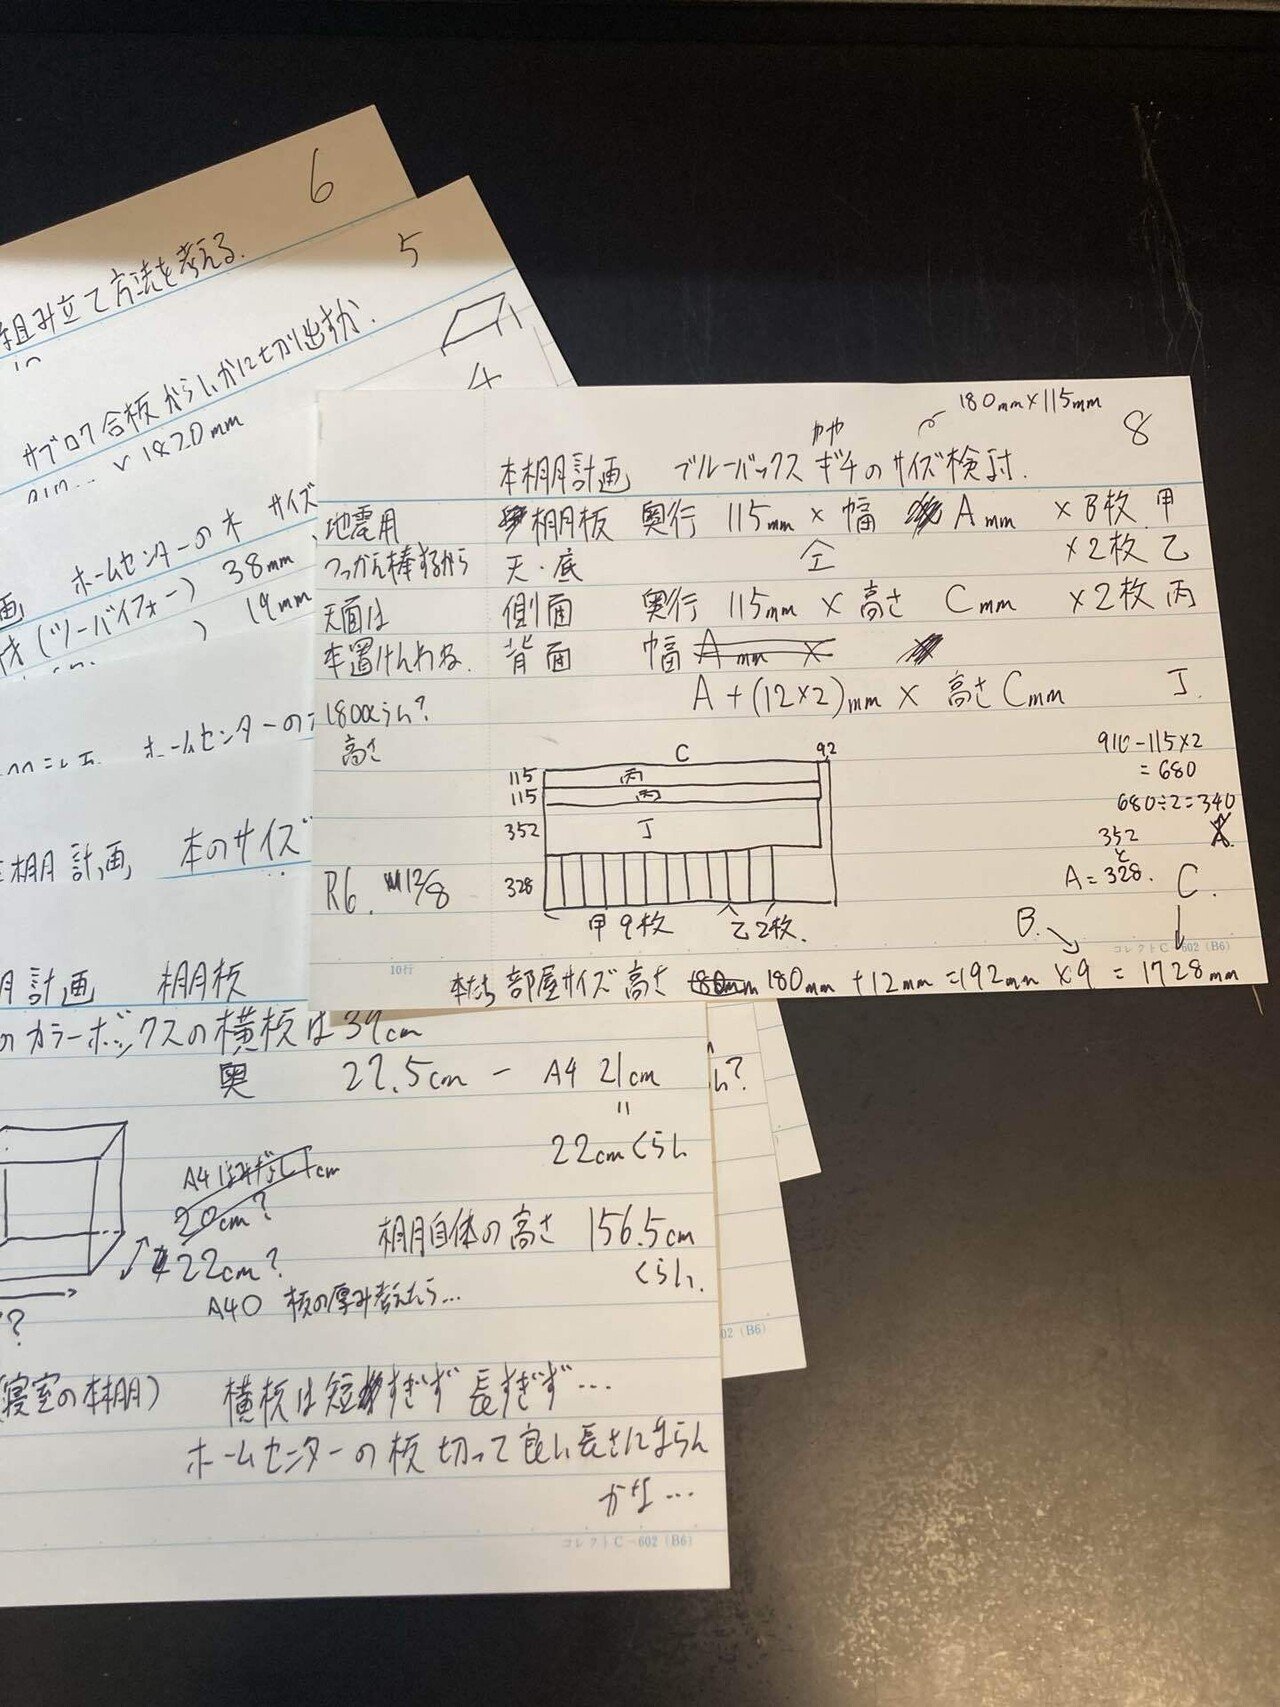 6
組み立て方法を考える.
5
サブロク合板からいかに切り出すか.
× 1820mm
4
ホームセンターの木 サイズ
材(ツーバイフォー) 38mm
) 19mm
ホームセンターの
本棚計画 本のサイズ
計画 棚板
のカラーボックスの横板は39cm
奥 27.5cm - A4 21cm
〃
22cmくらい
A4はみだし1cm
20cm?
22cm?
A4○ 板の厚み考えたら…
棚自体の高さ 156.5cm
くらい.
?
(寝室の本棚) 横板は短すぎず 長すぎず…
ホームセンターの板 切って良い長さにならん
かな…
コレクト C-602 (B6)
02 (B6)
い?
8
180mm×115mm
やや
本棚計画 ブルーバックス ギチのサイズ検討.
地震用
つっかえ棒するから
天面は
本置けんわね.
180くらい?
高さ
R6. 12/8
棚板 奥行 115mm × 幅 Amm × B枚 甲
天・底 仝 ×2枚 乙
側面 奥行 115mm × 高さ Cmm ×2枚 丙
背面 幅 Amm ×
A+(12×2)mm × 高さ Cmm 丁.
C 92
115 丙
115 丙
352 丁
328
甲9枚 乙2枚.
910-115×2
=680
680÷2=340
A
352
と
A=328. C.
B.
10行
コレクト C-602 (B6)
本たち 部屋サイズ 高さ 180mm 180mm +12mm =192mm ×9 = 1728mm